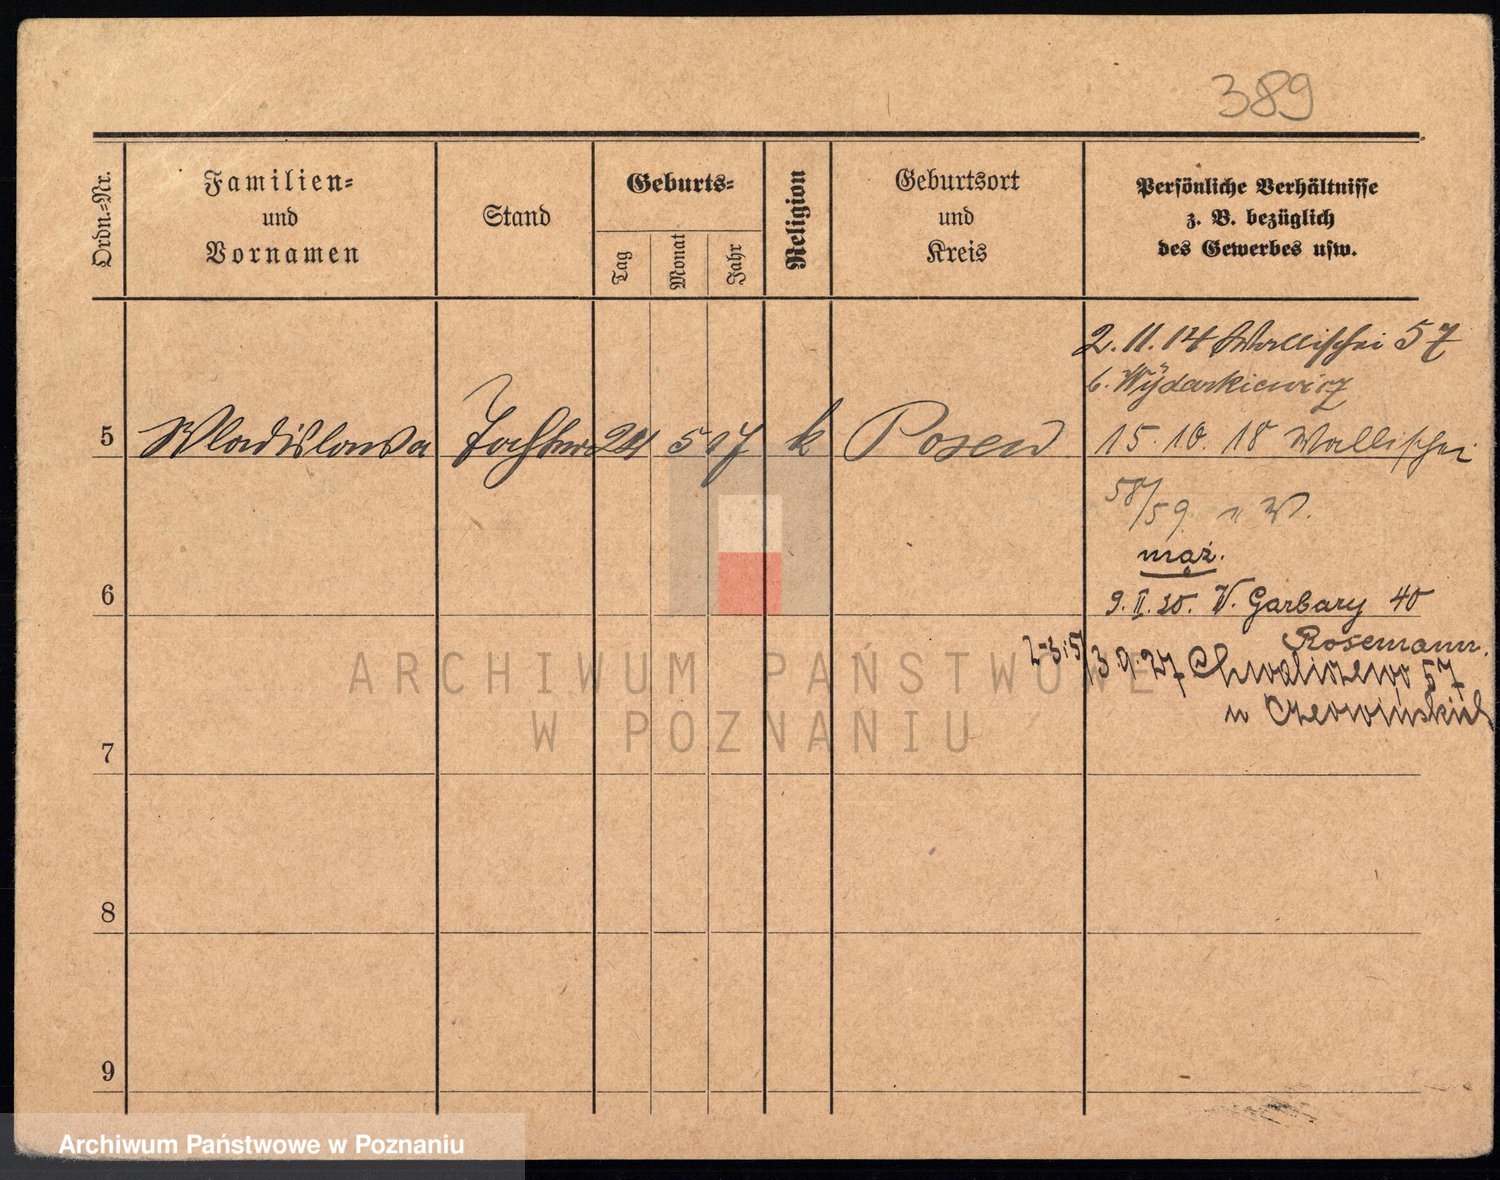 389
Ordn.-Nr.
Familien-
und
Vornamen
Stand
Geburts-
Tag
Monat
Jahr
Religion
Geburtsort
und
Kreis
Persönliche Verhältnisse
z. B. bezüglich
des Gewerbes usw.
2.11.14 Wallischei 57
b. Wÿdarkiewicz
5 Wladislawa Tochter 24 5 17 k Posen 15.10.18 Wallischei
58/59. W.
mąż.
6 9.II.20. W. Garbary 40
Rosemann.
3.9.27 Chwaliszewo 57
u Czerwińskich
ARCHIWUM PAŃSTWOWE
W POZNANIU
7
8
9
Archiwum Państwowe w Poznaniu